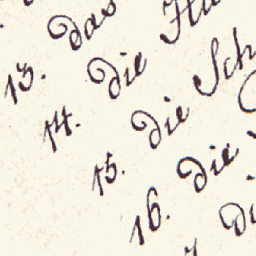 13. Das
14. Die
15. Die Sch
16. Die
Di